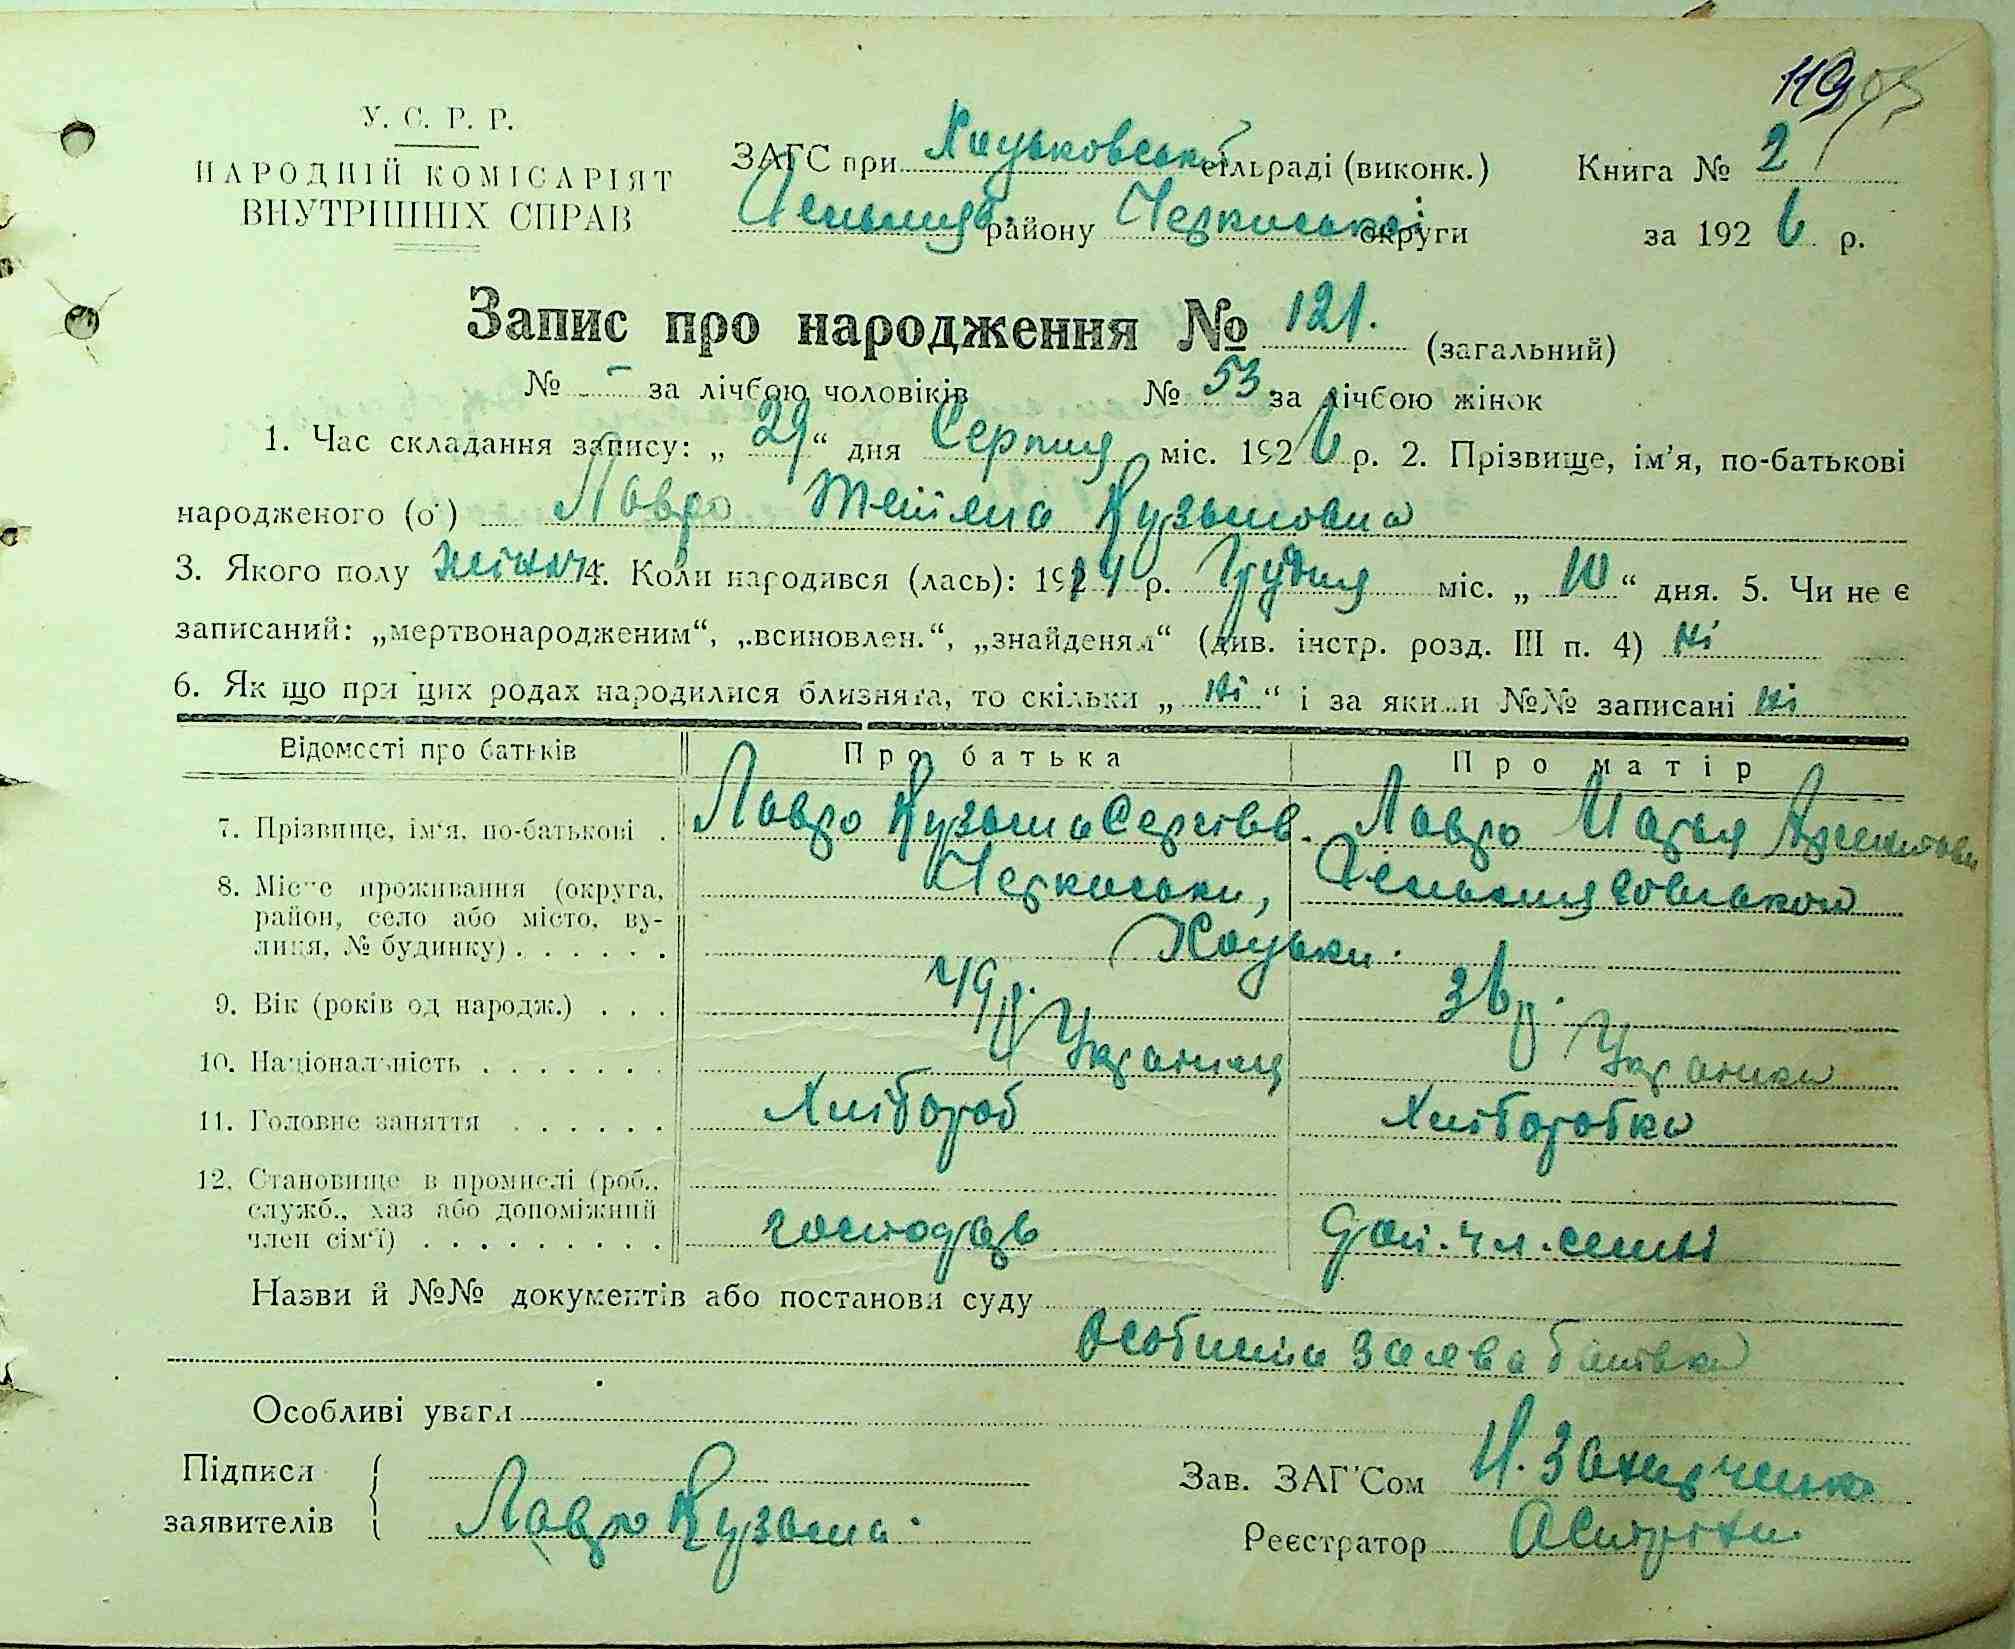 119
У. С. Р. Р.
НАРОДНІЙ КОМІСАРІЯТ
ВНУТРІШНІХ СПРАВ
ЗАГС при Хацьковській сільраді (виконк.)
району Черкаської округи
Книга № 2
за 1926 р.
Запис про народження № 121. (загальний)
№ - за лічбою чоловіків № 53 за лічбою жінок
1. Час складання запису: „ 29 “ дня Серпня міс. 1926 р. 2. Прізвище, ім’я, по-батькові
народженого (ої) Лавро Тетяна Кузьмовна
3. Якого полу жіноч 4. Коли народився (лась): 1914 р. Грудня міс. „ 10 “ дня. 5. Чи не є
записаний: „мертвонародженим“, „всиновлен.“, „знайденям“ (див. інстр. розд. III п. 4) ні
6. Як що при цих родах народилися близнята, то скільки „ ні “ і за якими №№ записані ні
Відомості про батьків Про батька Про матір
7. Прізвище, ім‘я, по-батькові . Лавро Кузьма Сергієв. Лавро Марья
8. Місце проживання (округа, район, село або місто, вулиця, № будинку) . . . . . . Черкаськи,
Хацьки.
9. Вік (років од народж.) . . . 49 р. 36 р.
10. Національність . . . . . . . Украинец Украинка
11. Головне заняття . . . . . . Хлібороб Хліборобка
12. Становище в промислі (роб., служб., хаз або допоміжний член сім‘ї) . . . . . . . . . господарь доп. чл. семьї
Назви й №№ документів або постанови суду
Особиста заява батька
Особливі уваги
Підписи
заявителів Лавро Кузьма.
Зав. ЗАГ’Сом
Реєстратор